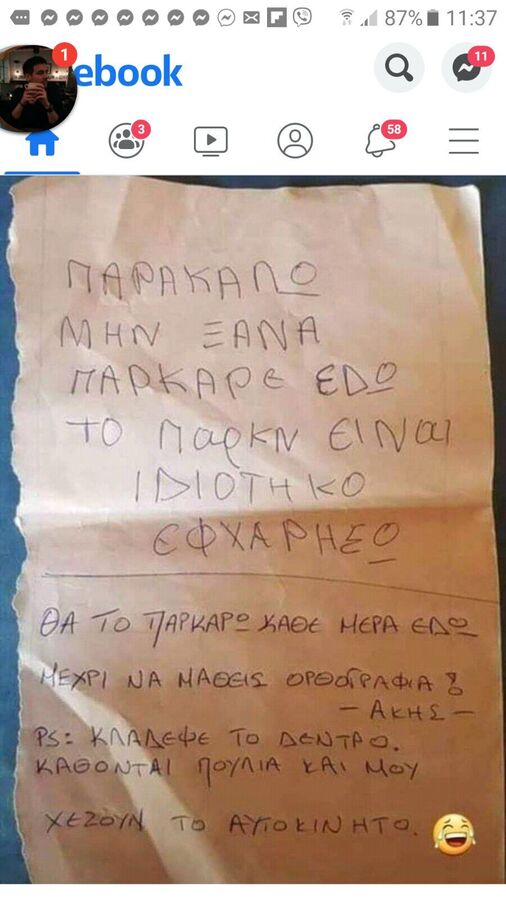 87% 11:37
1
ebook
11
3
58
ΠΑΡΑΚΑΛΩ
ΜΗΝ ΞΑΝΑ
ΠΑΡΚΑΡΕ ΕΔΩ
ΤΟ παρκν ΕΙΝαι
ΙΔΙΟΤΗΚΟ
ΕΦΧΑΡΗΣΟ
ΘΑ ΤΟ ΠΑΡΚΑΡΩ ΚΑΘΕ ΜΕΡΑ ΕΔΩ
ΜΕΧΡΙ ΝΑ ΜΑΘΕΙΣ ΟΡΘΟΓΡΑΦΙΑ !
- ΑΚΗΣ -
PS: ΚΛΑΔΕΨΕ ΤΟ ΔΕΝΤΡΟ.
ΚΑΘΟΝΤΑΙ ΠΟΥΛΙΑ ΚΑΙ ΜΟΥ
ΧΕΖΟΥΝ ΤΟ ΑΥΤΟΚΙΝΗΤΟ.